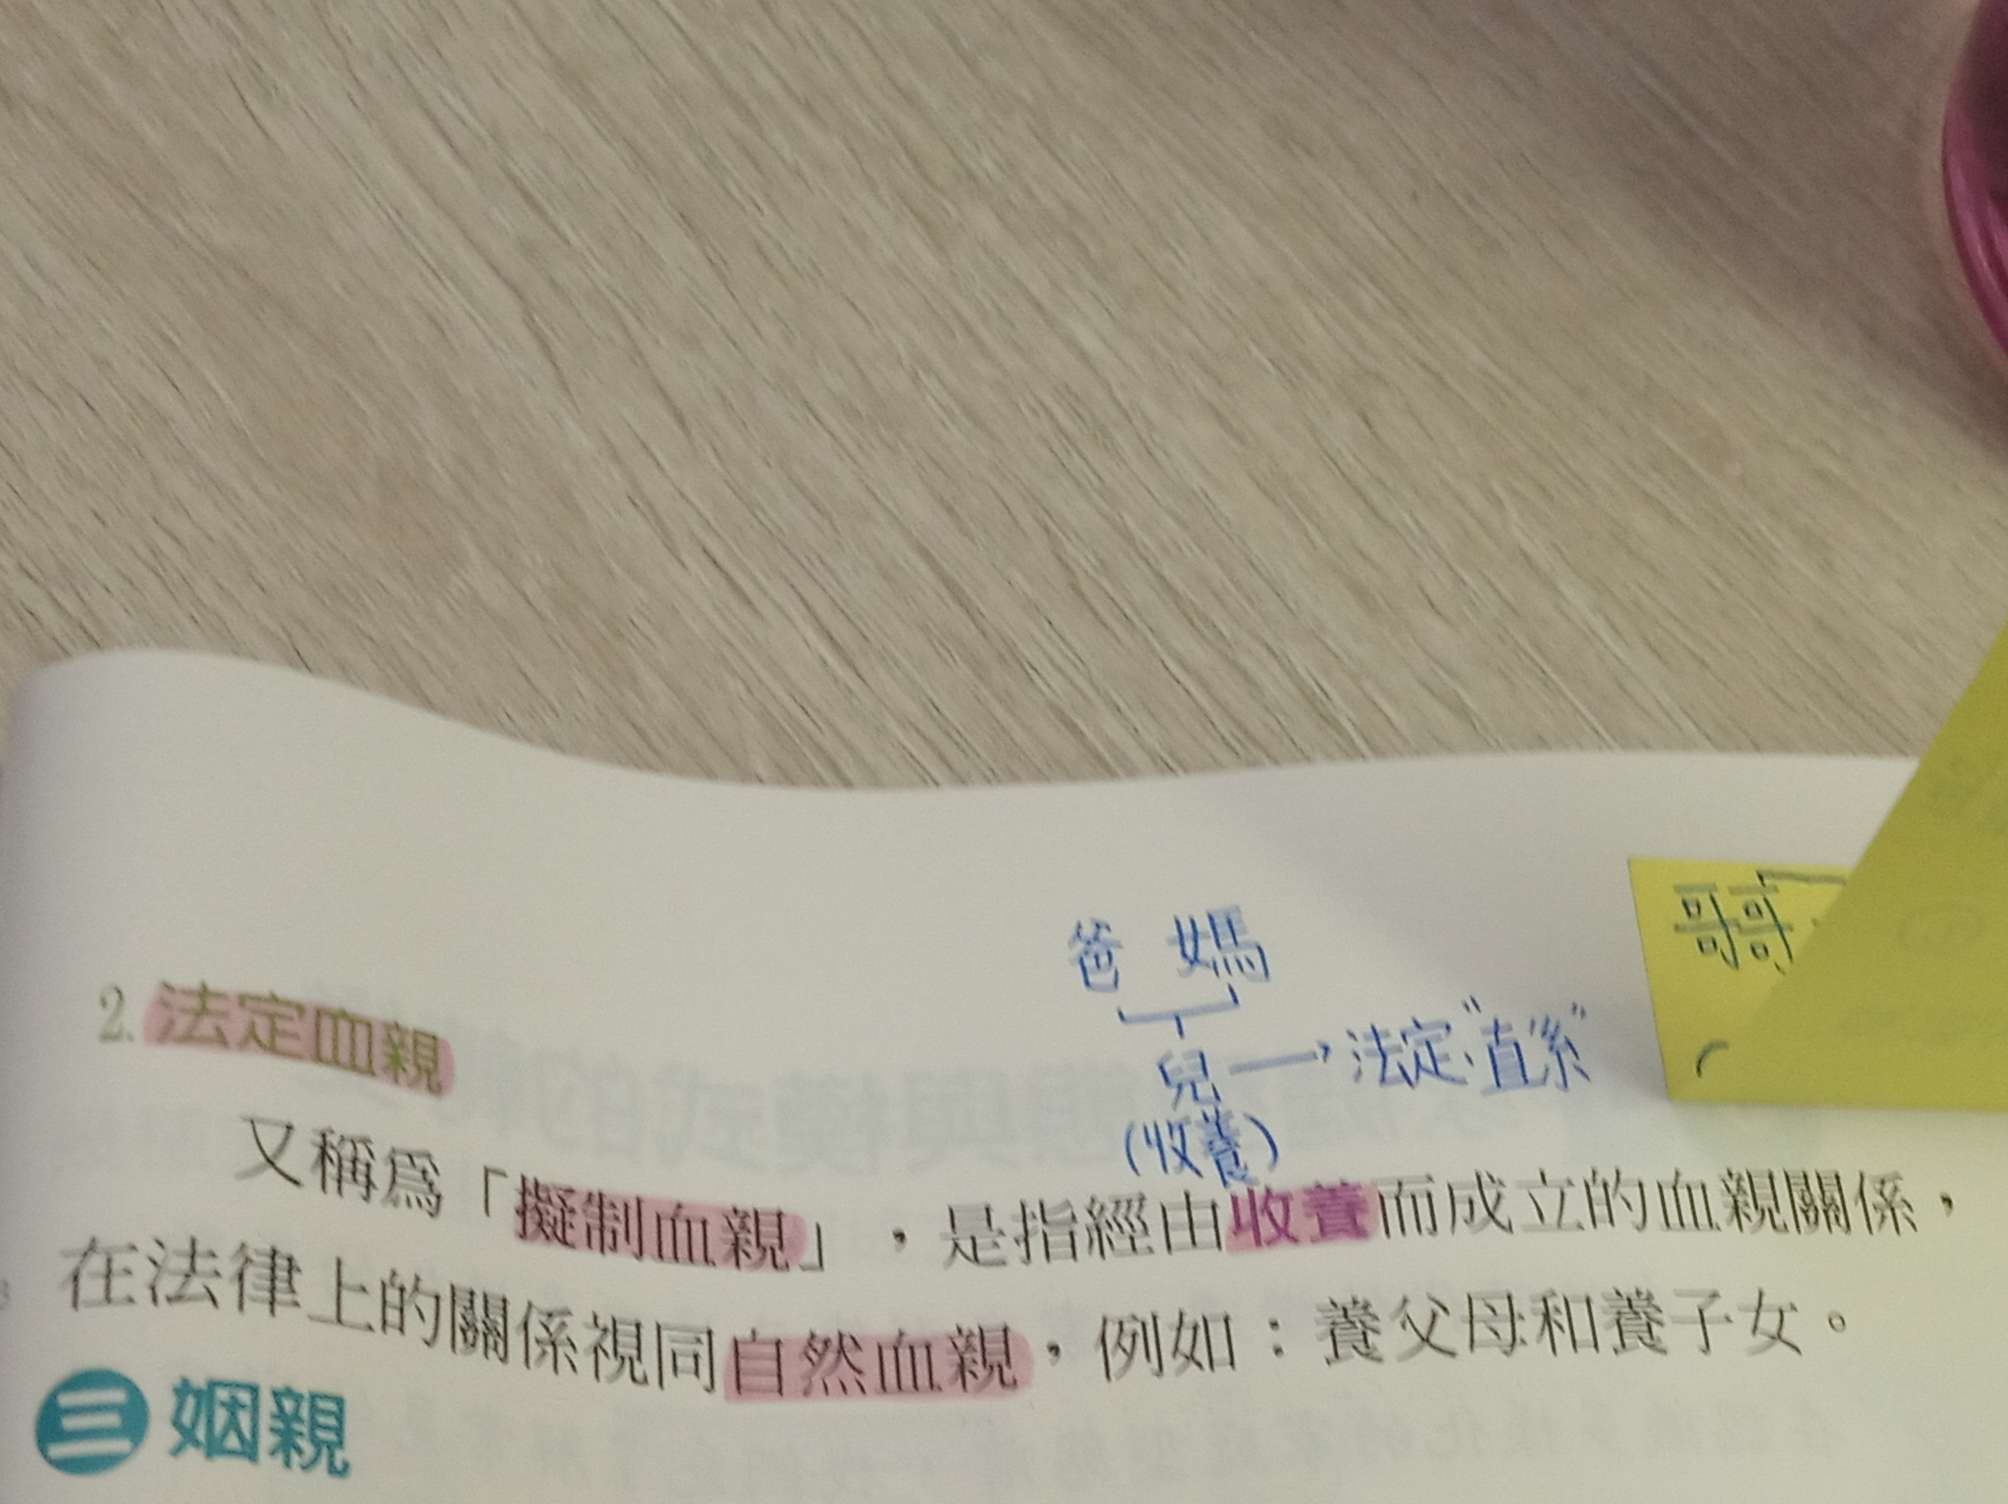 爸 媽
兒 → 法定"直系"
(收養)
哥哥
2. 法定血親
又稱爲「擬制血親」，是指經由收養而成立的血親關係，
在法律上的關係視同自然血親，例如：養父母和養子女。
三 姻親